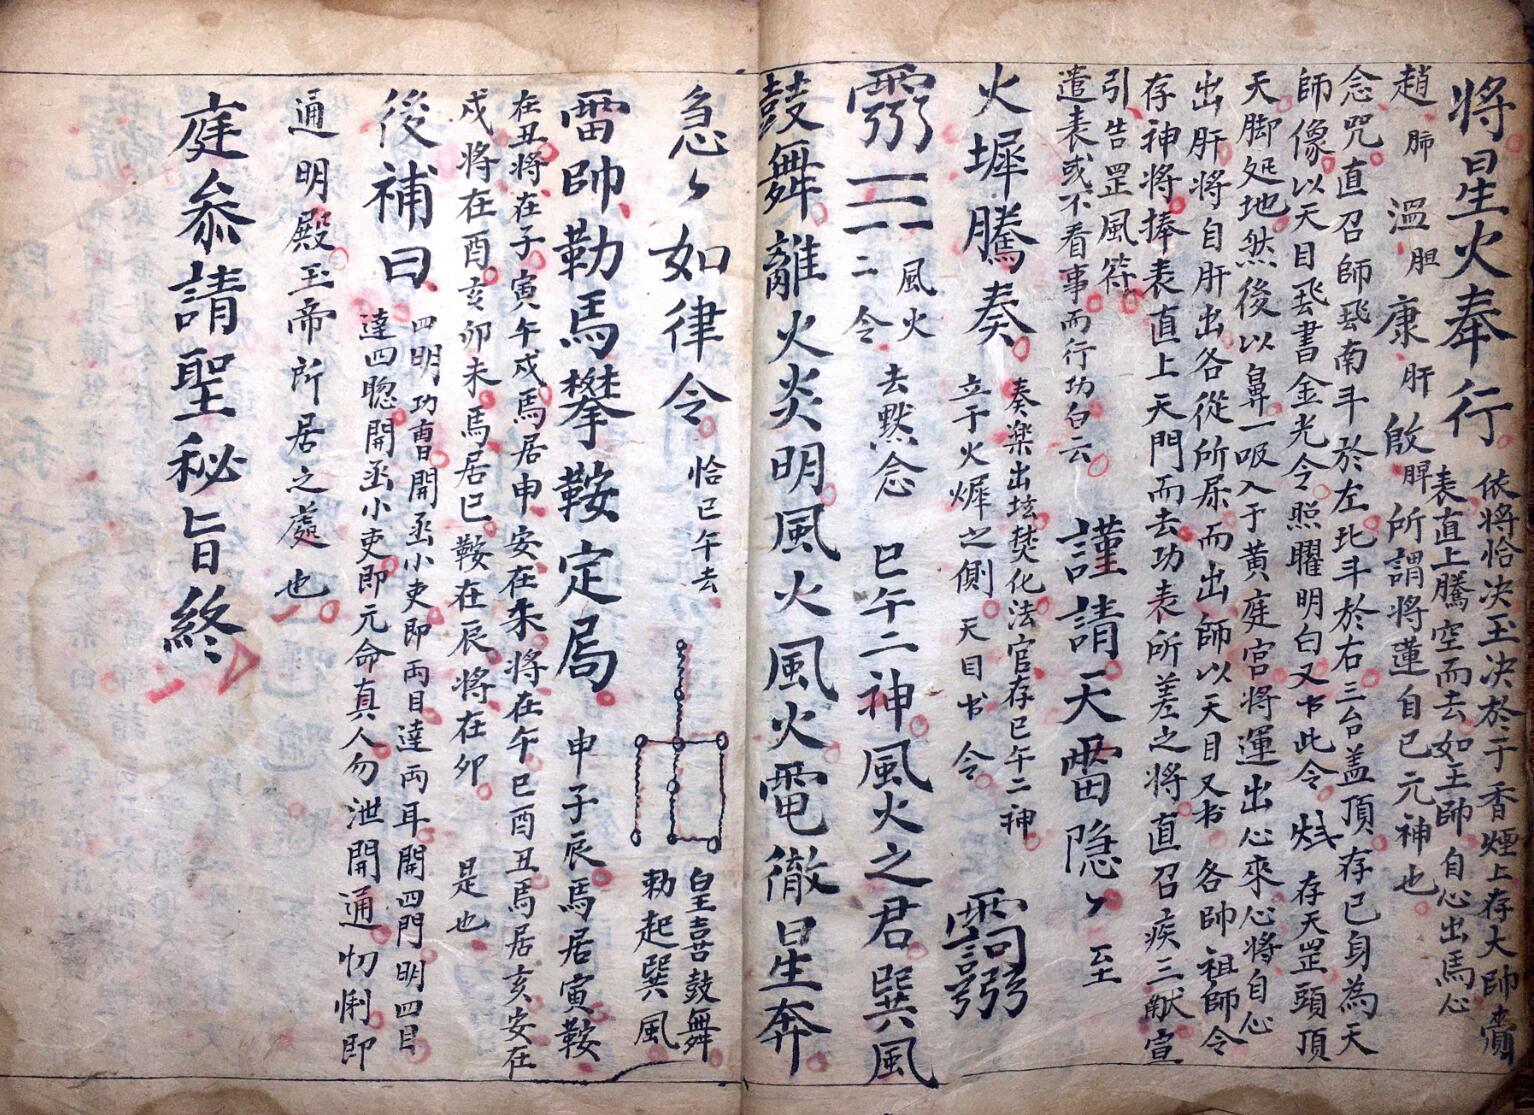 将星火奉行
依将恰决玉决於于香煙上存大帥賫
表直上騰空而去如王帥自心出馬心
趙肺溫胆康肝啟脾所謂将蓮自已元神也
念咒直召師飛南斗於左北斗於右三台盖頂存已身為天
師像以天目飛書金光令照曜明白又书此令存天罡頭頂
天脚処地然後以鼻一吸入于黄庭宫将運出心來心将自心
出肝将自肝出各從所属而出師以天目又书各帥祖師令
存神将捧表直上天門而去功表所差之将直召疾三献宣
引告罡風符
遣表或不看事而行功白云
謹請天雷隐〻至
火墀騰奏
奏楽出垓焚化法官存巳午二神
立于火墀之側天目书令
風火二令去默念巳午二神風火之君巽風
鼓舞離火炎明風火風火電徹星奔
急〻如律令恰巳午去
皇喜鼓舞
勅起巽風
雷帥勒馬攀鞍定局申子辰馬居寅鞍
在丑将在子寅午戍馬居申安在未将在午巳酉丑馬居亥安在
戍将在酉亥卯未馬居巳鞍在辰将在卯是也
後補曰
四明功曹開丞小吏即両目達両耳開四門明四目
達四聪開丞小吏即元命真人勿泄開通忉悧即
通明殿玉帝所居之處也
庭叅請聖秘旨終